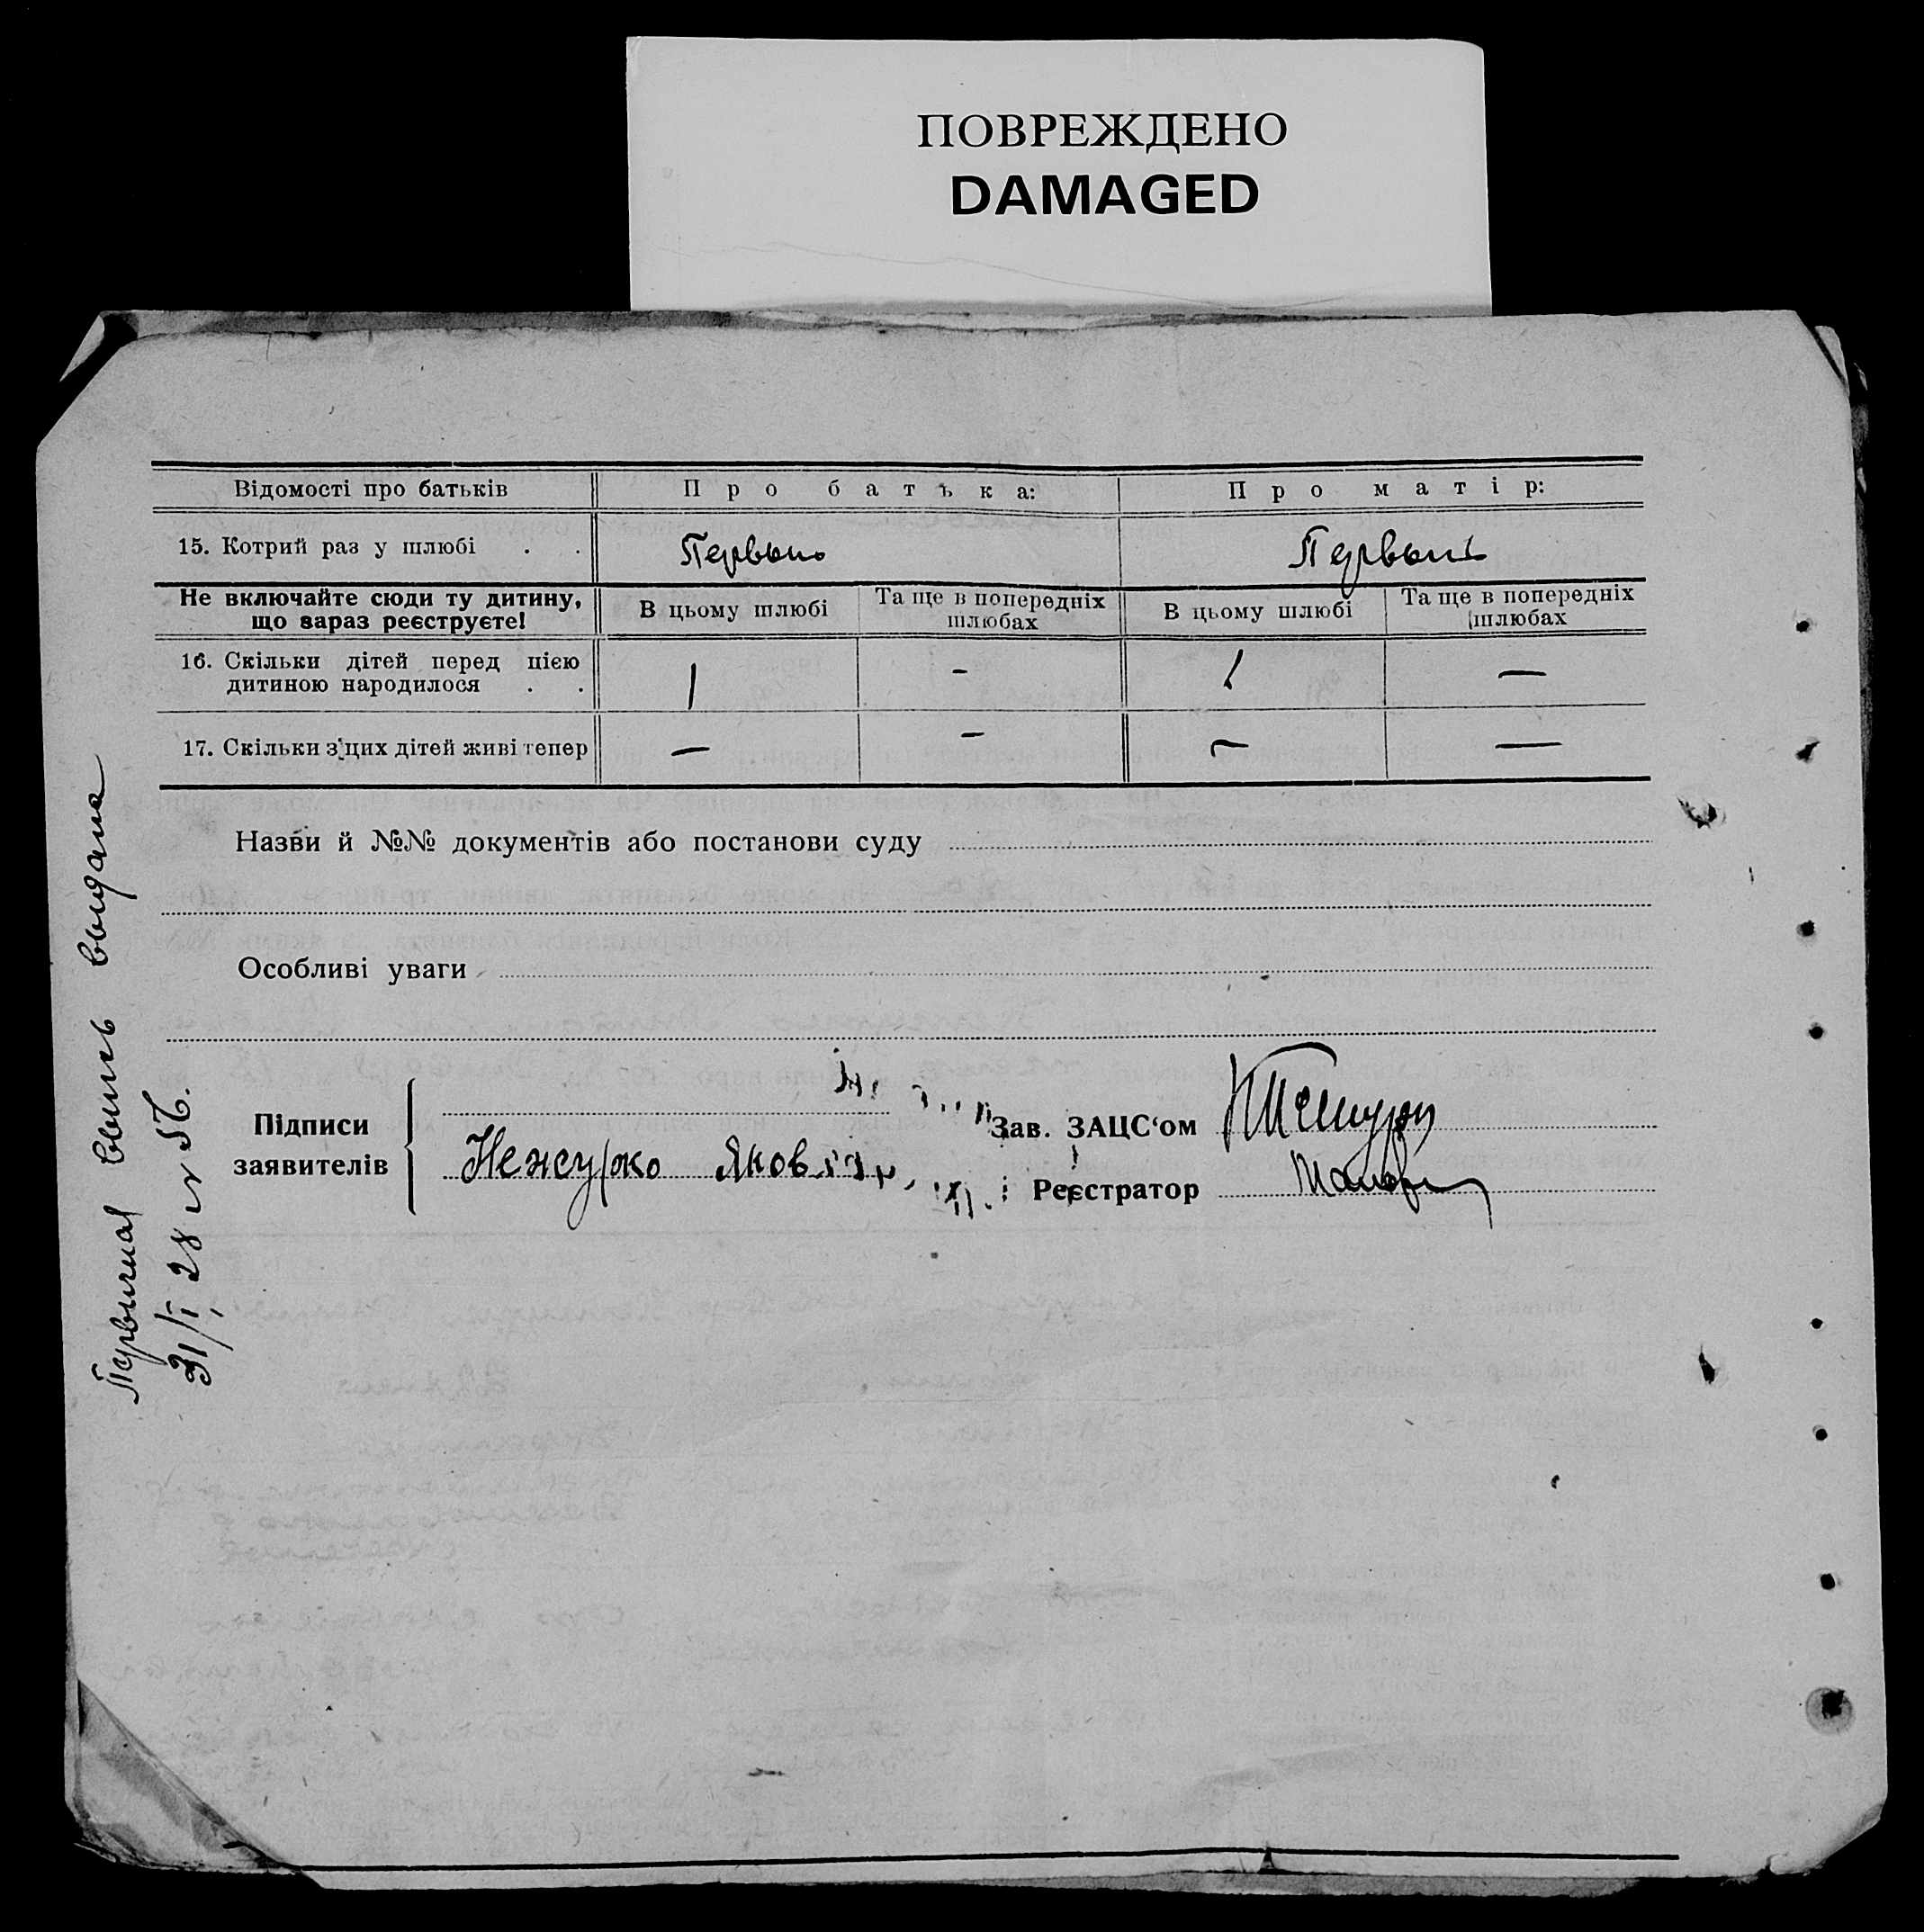 ПОВРЕЖДЕНО
DAMAGED
Відомості про батьків
Про батька:
Про матір:
15. Котрий раз у шлюбі . .
Первый
Первый
Не включайте сюди ту дитину,
що зараз реєструєте!
В цьому шлюбі
Та ще в попередніх
шлюбах
В цьому шлюбі
Та ще в попередніх
шлюбах
16. Скільки дітей перед цією
дитиною народилося . .
1
-
1
—
17. Скільки з цих дітей живі тепер
—
-
—
—
Назви й №№ документів або постанови суду
Особливі уваги
Підписи
заявителів
Яков
Зав. ЗАЦС'ом
Реєстратор
выдана
31/I 28